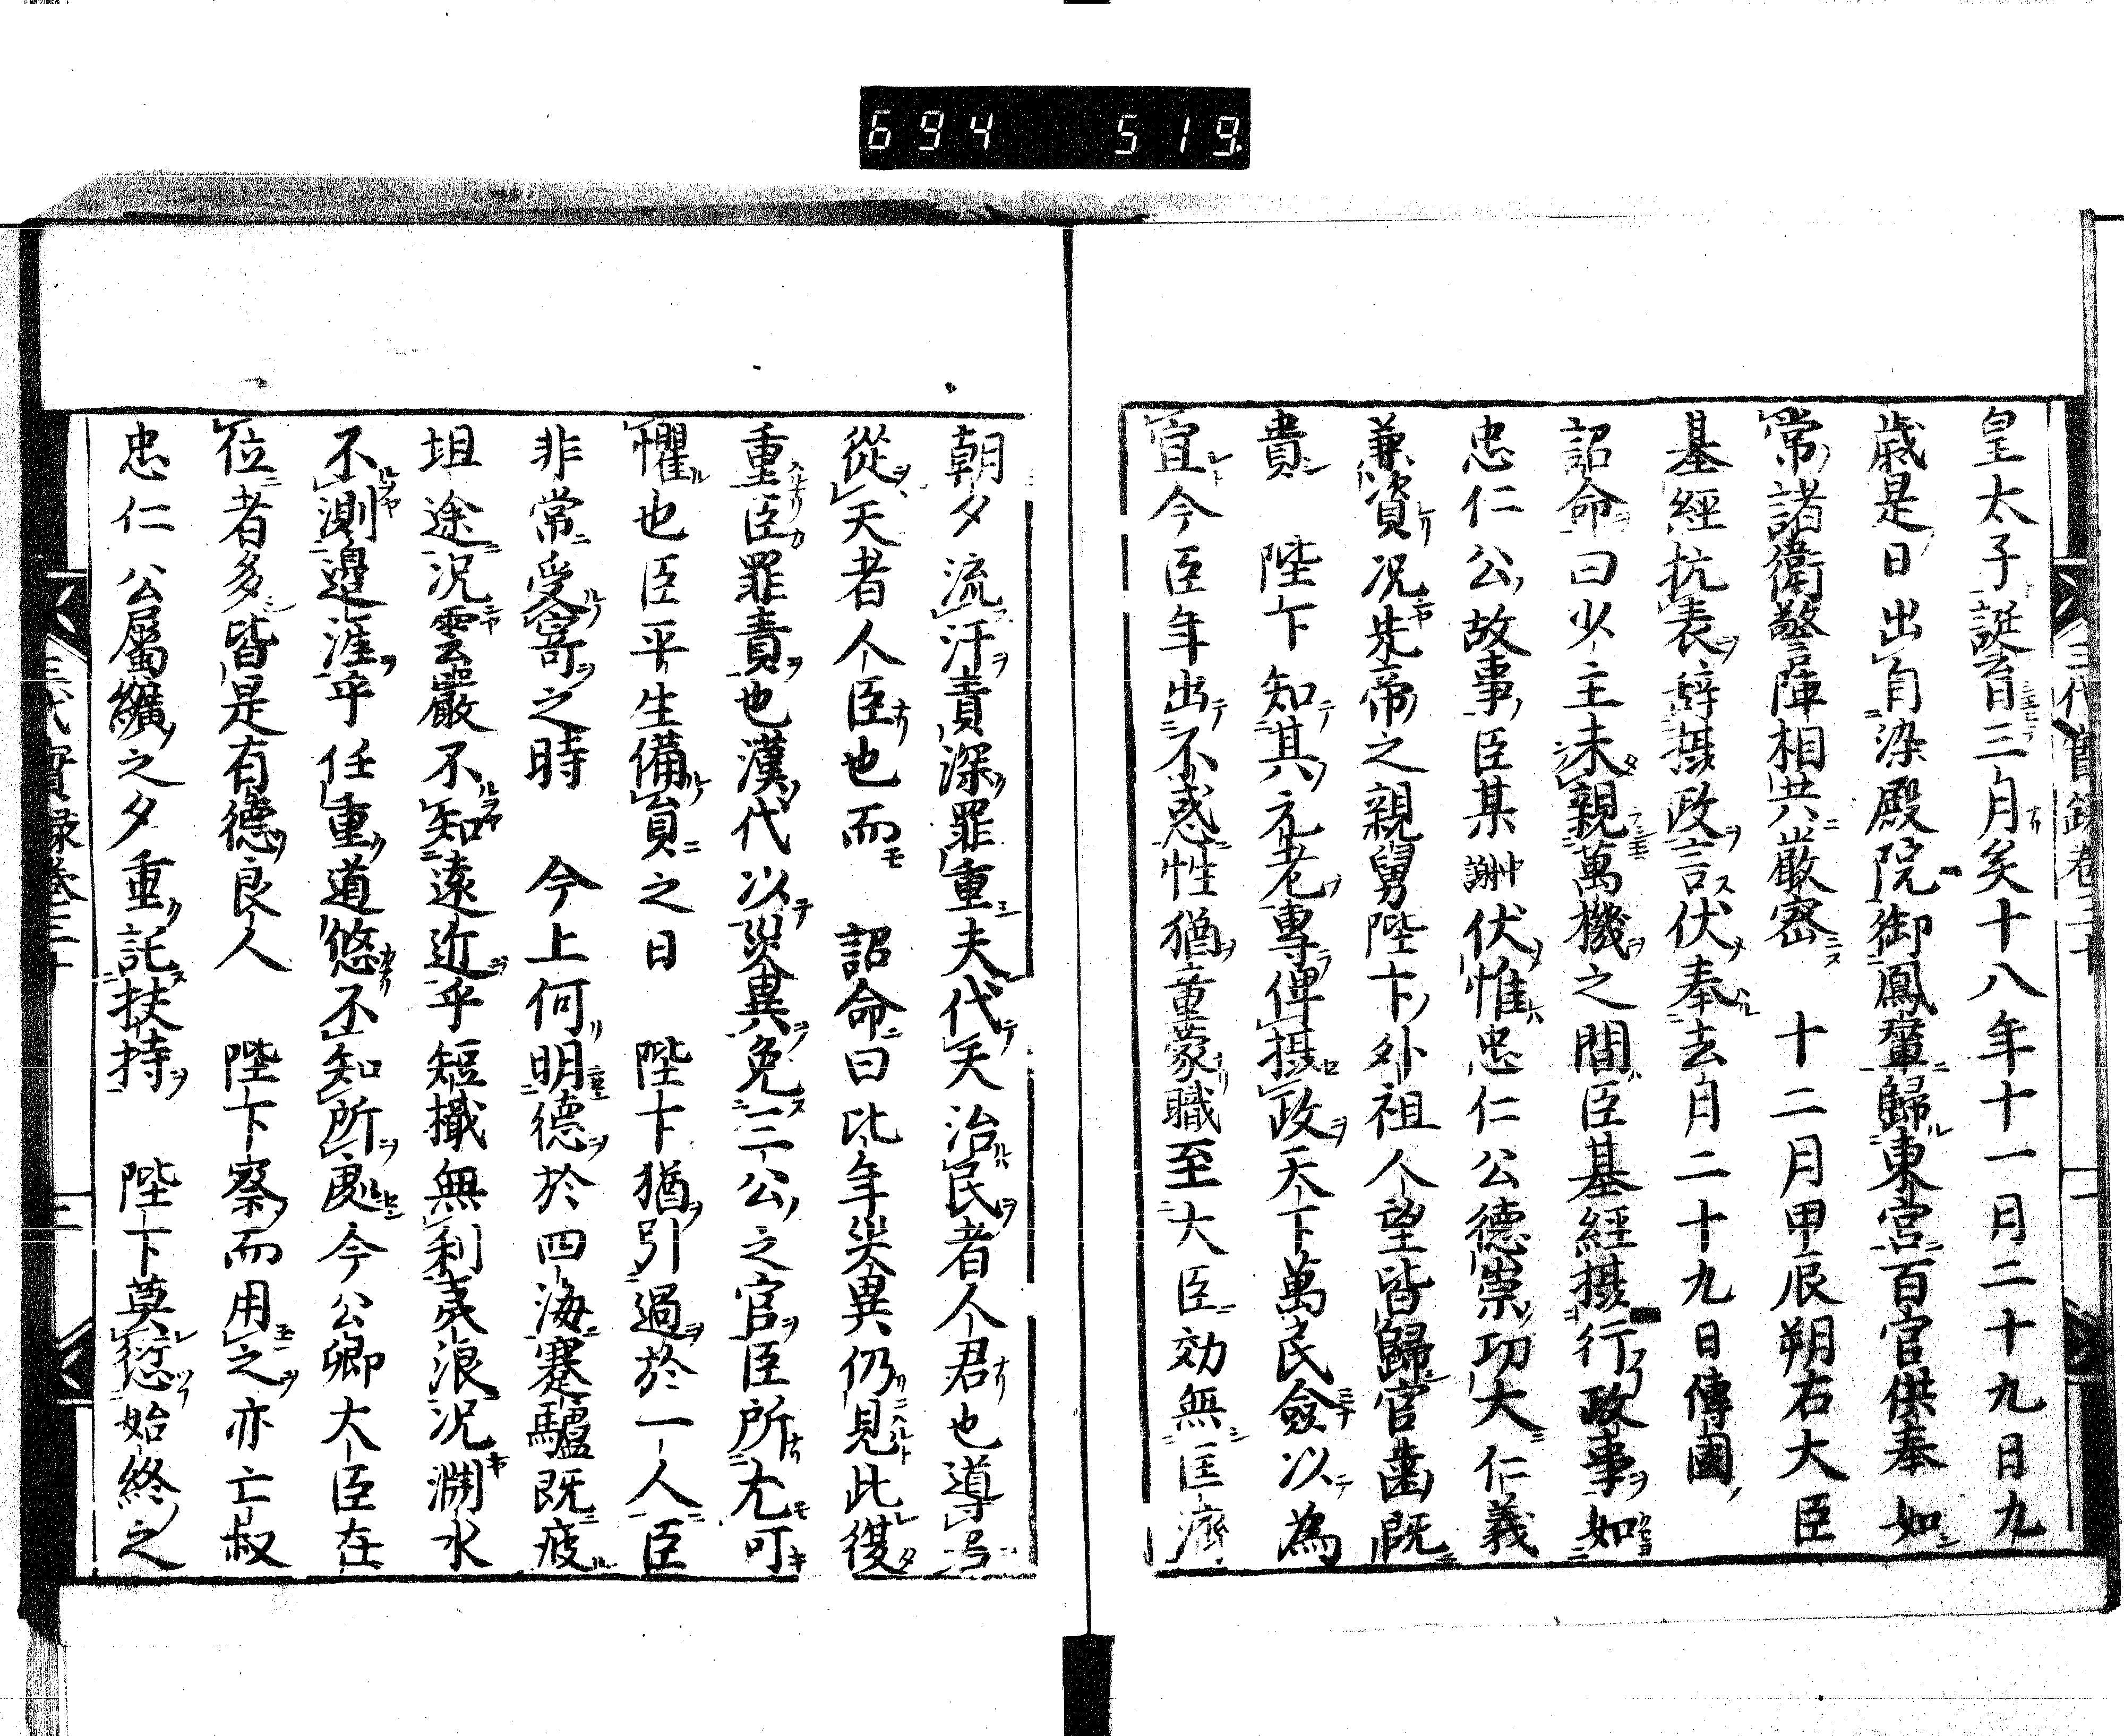 694 519
皇太子誕育三月矣十八年十一月二十九日九
歳是日出自染殿院御鳳輦歸東宮百官供奉如
常諸衛警陣相共嚴密 十二月甲辰朔右大臣
基經抗表辞摂政言伏奉去月二十九日傳國
詔命曰少主未親萬機之間臣基經摂行政事如
忠仁公故事臣某誹伏惟忠仁公德崇功大仁義
兼資况先帝之親舅陛下外祖人望皆歸官歯既
貴 陛下知其元老專俾摂政天下萬民僉以為
宜今臣年出不惑性猶童蒙職至大臣効無匡濟
朝夕流汗責深罪重夫代天治民者人君也導
從天者人臣也而 詔命曰比年災異仍見此復
重臣罪責也漢代以災異免三公之官臣所尤可
懼也臣平生備員之日 陛下猶引過於一人臣
非常受寄之時 今上何明德於四海蹇驢既疲
坦途况雲巖不知遠近乎短檝無利表浪况淵水
不測邊涯乎任重道悠不知所處今公卿大臣在
位者多皆是有德良人 陛下察而用之亦亡叔
忠仁公屬纊之夕重託扶持 陛下莫愆始終之